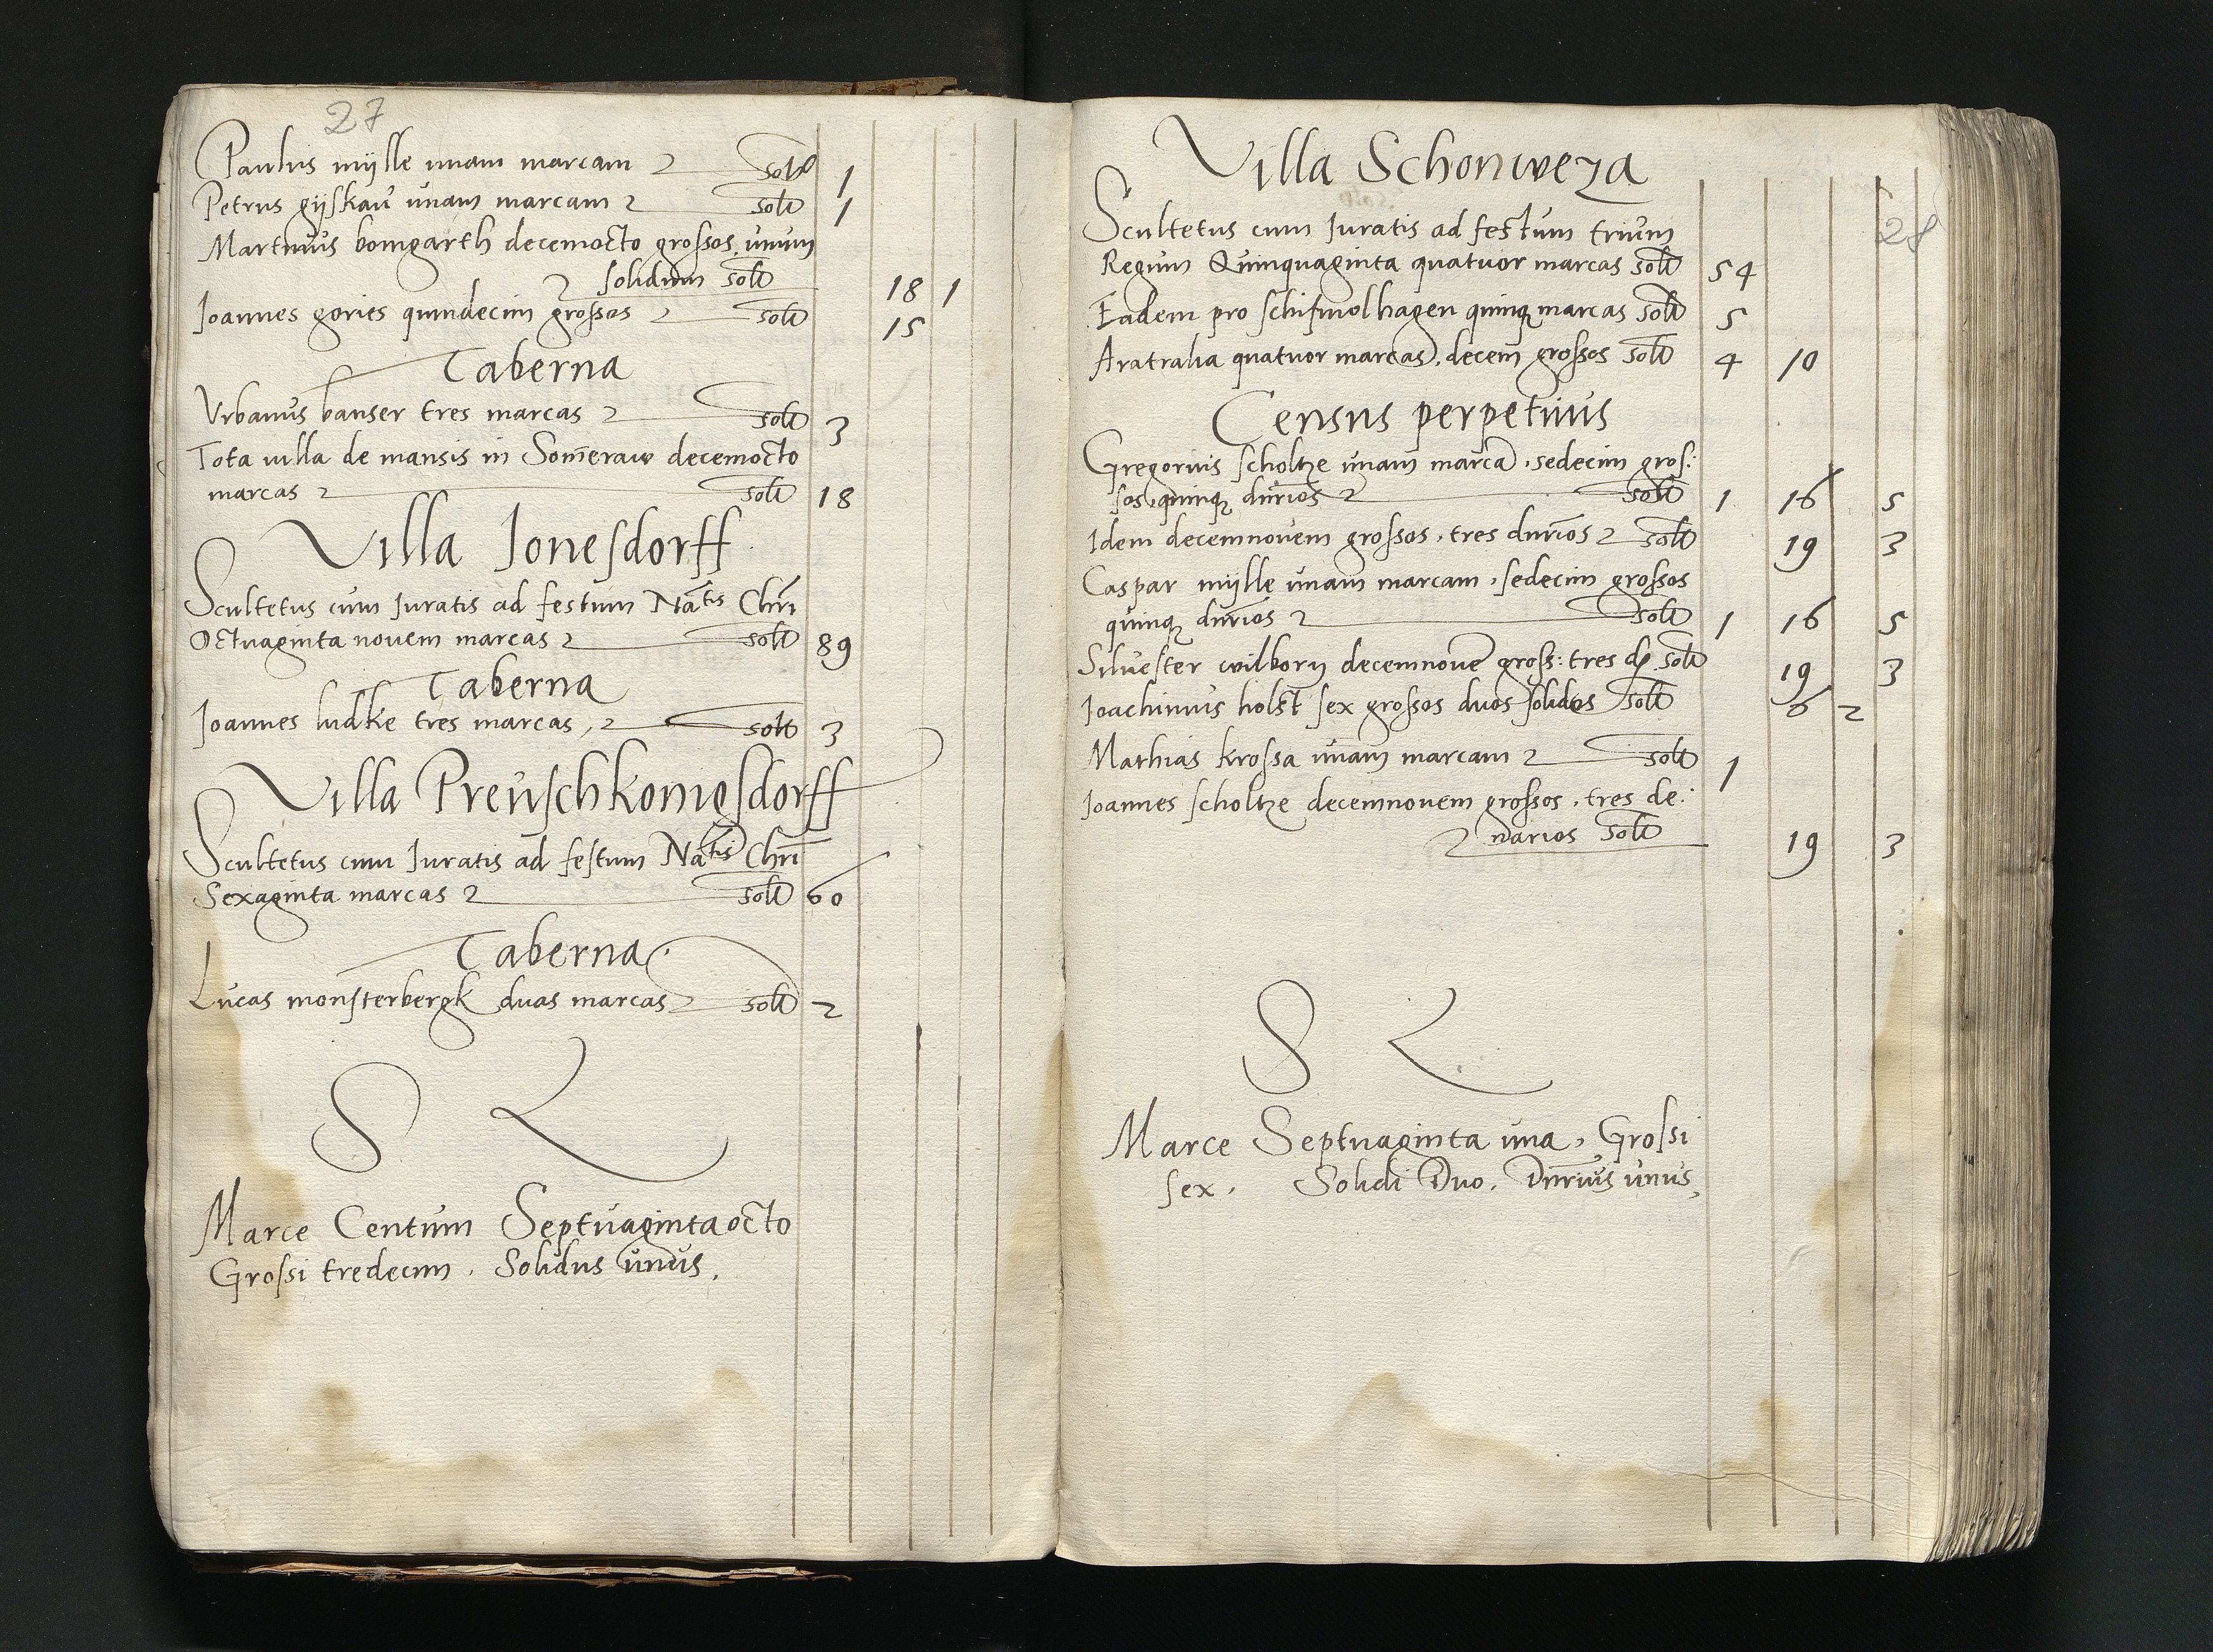 27
Paulus mÿlle unam marcam solt 1
Petrus gÿskau unam marcam solt 1
Martinus bomgarth decemocto grossos, unum
solidum solt 18 1
Joannes gories quindecim grossos solt 15
Taberna
Urbanus banser tres marcas solt 3
Tota villa de mansis in Som̄eraw decemocto
marcas solt 18
Villa Jonesdorff
Scultetus cum Juratis ad festum Natis Chri
Octuaginta novem marcas solt 89
Taberna
Joannes ludke tres marcas, solt 3
Villa Preuschkonigsdorff
Scultetus cum Juratis ad festum Natis Chri
Sexaginta marcas solt 60
Taberna
Lucas monsterbergk duas marcas solt 2
S
Marce Centum Septuaginta octo
Grossi tredecim. Solidus unus.
Villa Schonweza
28
Scultetus cum Juratis ad festum trium
Regum Quinquaginta quatuor marcas solt 54
Eadem pro schipmolhagen quinq marcas solt 5
Aratralia quatuor marcas, decem grossos solt 4 10
Census perpetuus
Gregorius scholtze unam marcā, sedecim gros:
sos, quinq dnrios solt 1 16 5
Idem decemnovem grossos, tres dnrios solt 19 3
Caspar mÿlle unam marcam, sedecim grossos
quinq dnrios solt 1 16 5
Silvester wilborn decemnovē gross: tres d solt 19 3
Joachimus holst sex grossos duos solidos solt 6 2
Mathias krossa unam marcam solt 1
Joannes scholtze decemnovem grossos, tres de:
narios solt 19 3
S
Marce Septuaginta una, Grossi
sex. Solidi Duo. Dnrius unus,